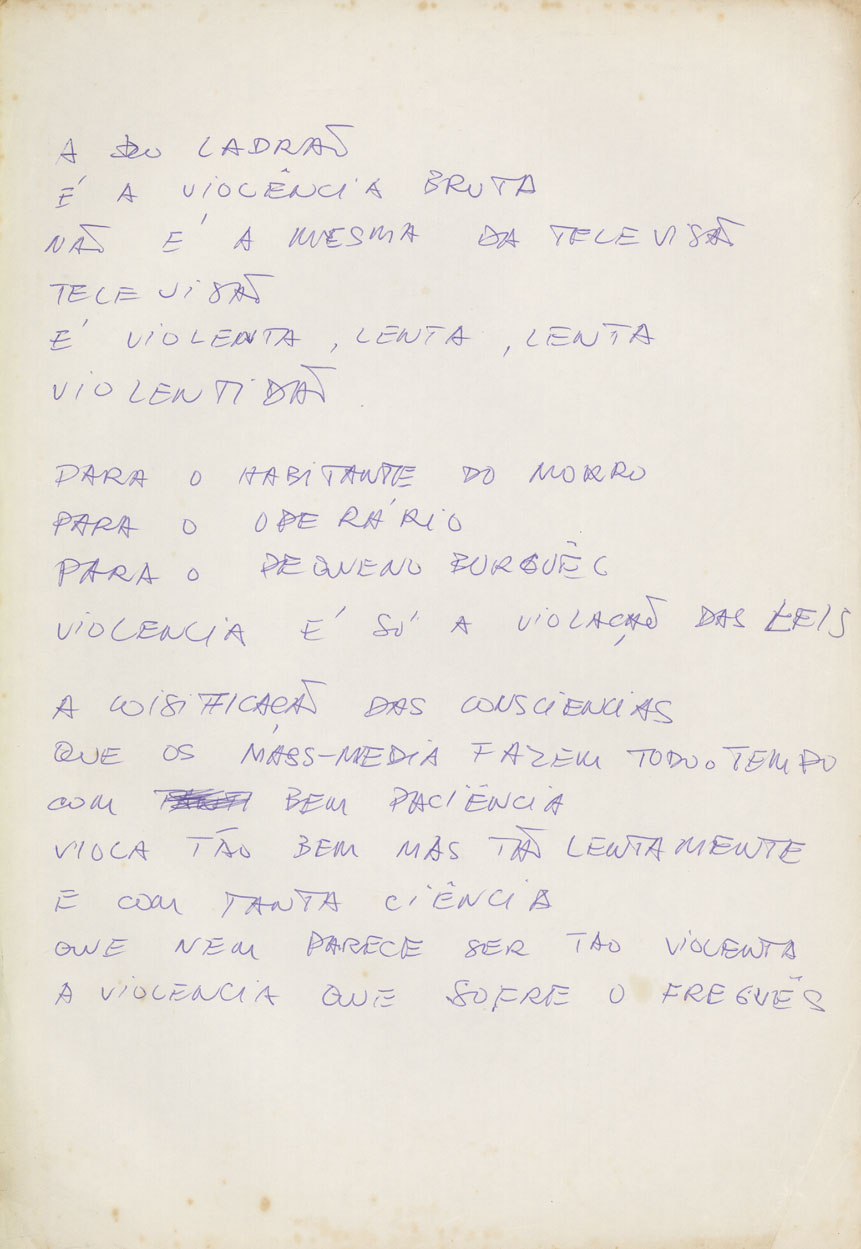 A DO LADRÃO
É A VIOLÊNCIA BRUTA
NÃO É A MESMA DA TELEVISÃO
TELEVISÃO
É VIOLENTA, LENTA, LENTA
VIOLENTIDÃO
PARA O HABITANTE DO MORRO
PARA O OPERÁRIO
PARA O PEQUENO BURGUÊS
VIOLENCIA É SÓ A VIOLAÇÃO DAS LEIS
A COISIFICAÇÃO DAS CONSCIENCIAS
QUE OS MÁSS-MEDIA FAZEM TODO O TEMPO
COM BEM PACIÊNCIA
VIOLA TÃO BEM MAS TÃO LENTAMENTE
E COM TANTA CIÊNCIA
QUE NEM PARECE SER TAO VIOLENTA
A VIOLENCIA QUE SOFRE O FREGUÊS